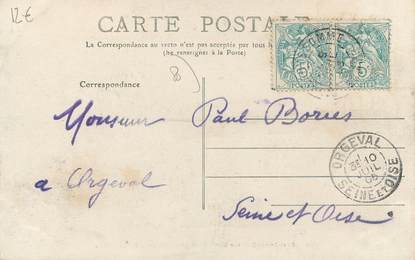 12 €
CARTE POSTALE
La Correspondance au verso n'est pas acceptée par tous
(Se renseigner à la Poste)
8
Correspondance
Monsieur Paul Bories
a Orgeval
Seine et Oise
5 5
POSTES
ORGEVAL
10
JUIL
SEINE ET OISE